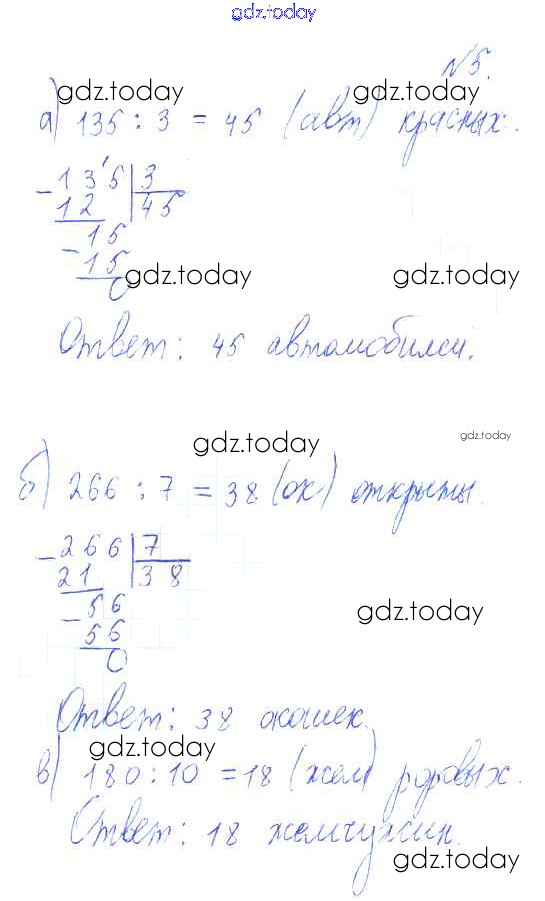 gdz.today
№5.
gdz.today gdz.today
а) 135 : 3 = 45 (авт) красных.
- 135 | 3
12 | 45
- 15
15
0
gdz.today gdz.today
Ответ: 45 автомобилей.
gdz.today gdz.today
б) 266 : 7 = 38 (ок) открыты.
- 266 | 7
21 | 38
- 56
56
0
gdz.today
Ответ: 38 окошек.
gdz.today
в) 180 : 10 = 18 (жем) розовых.
Ответ: 18 жемчужин.
gdz.today